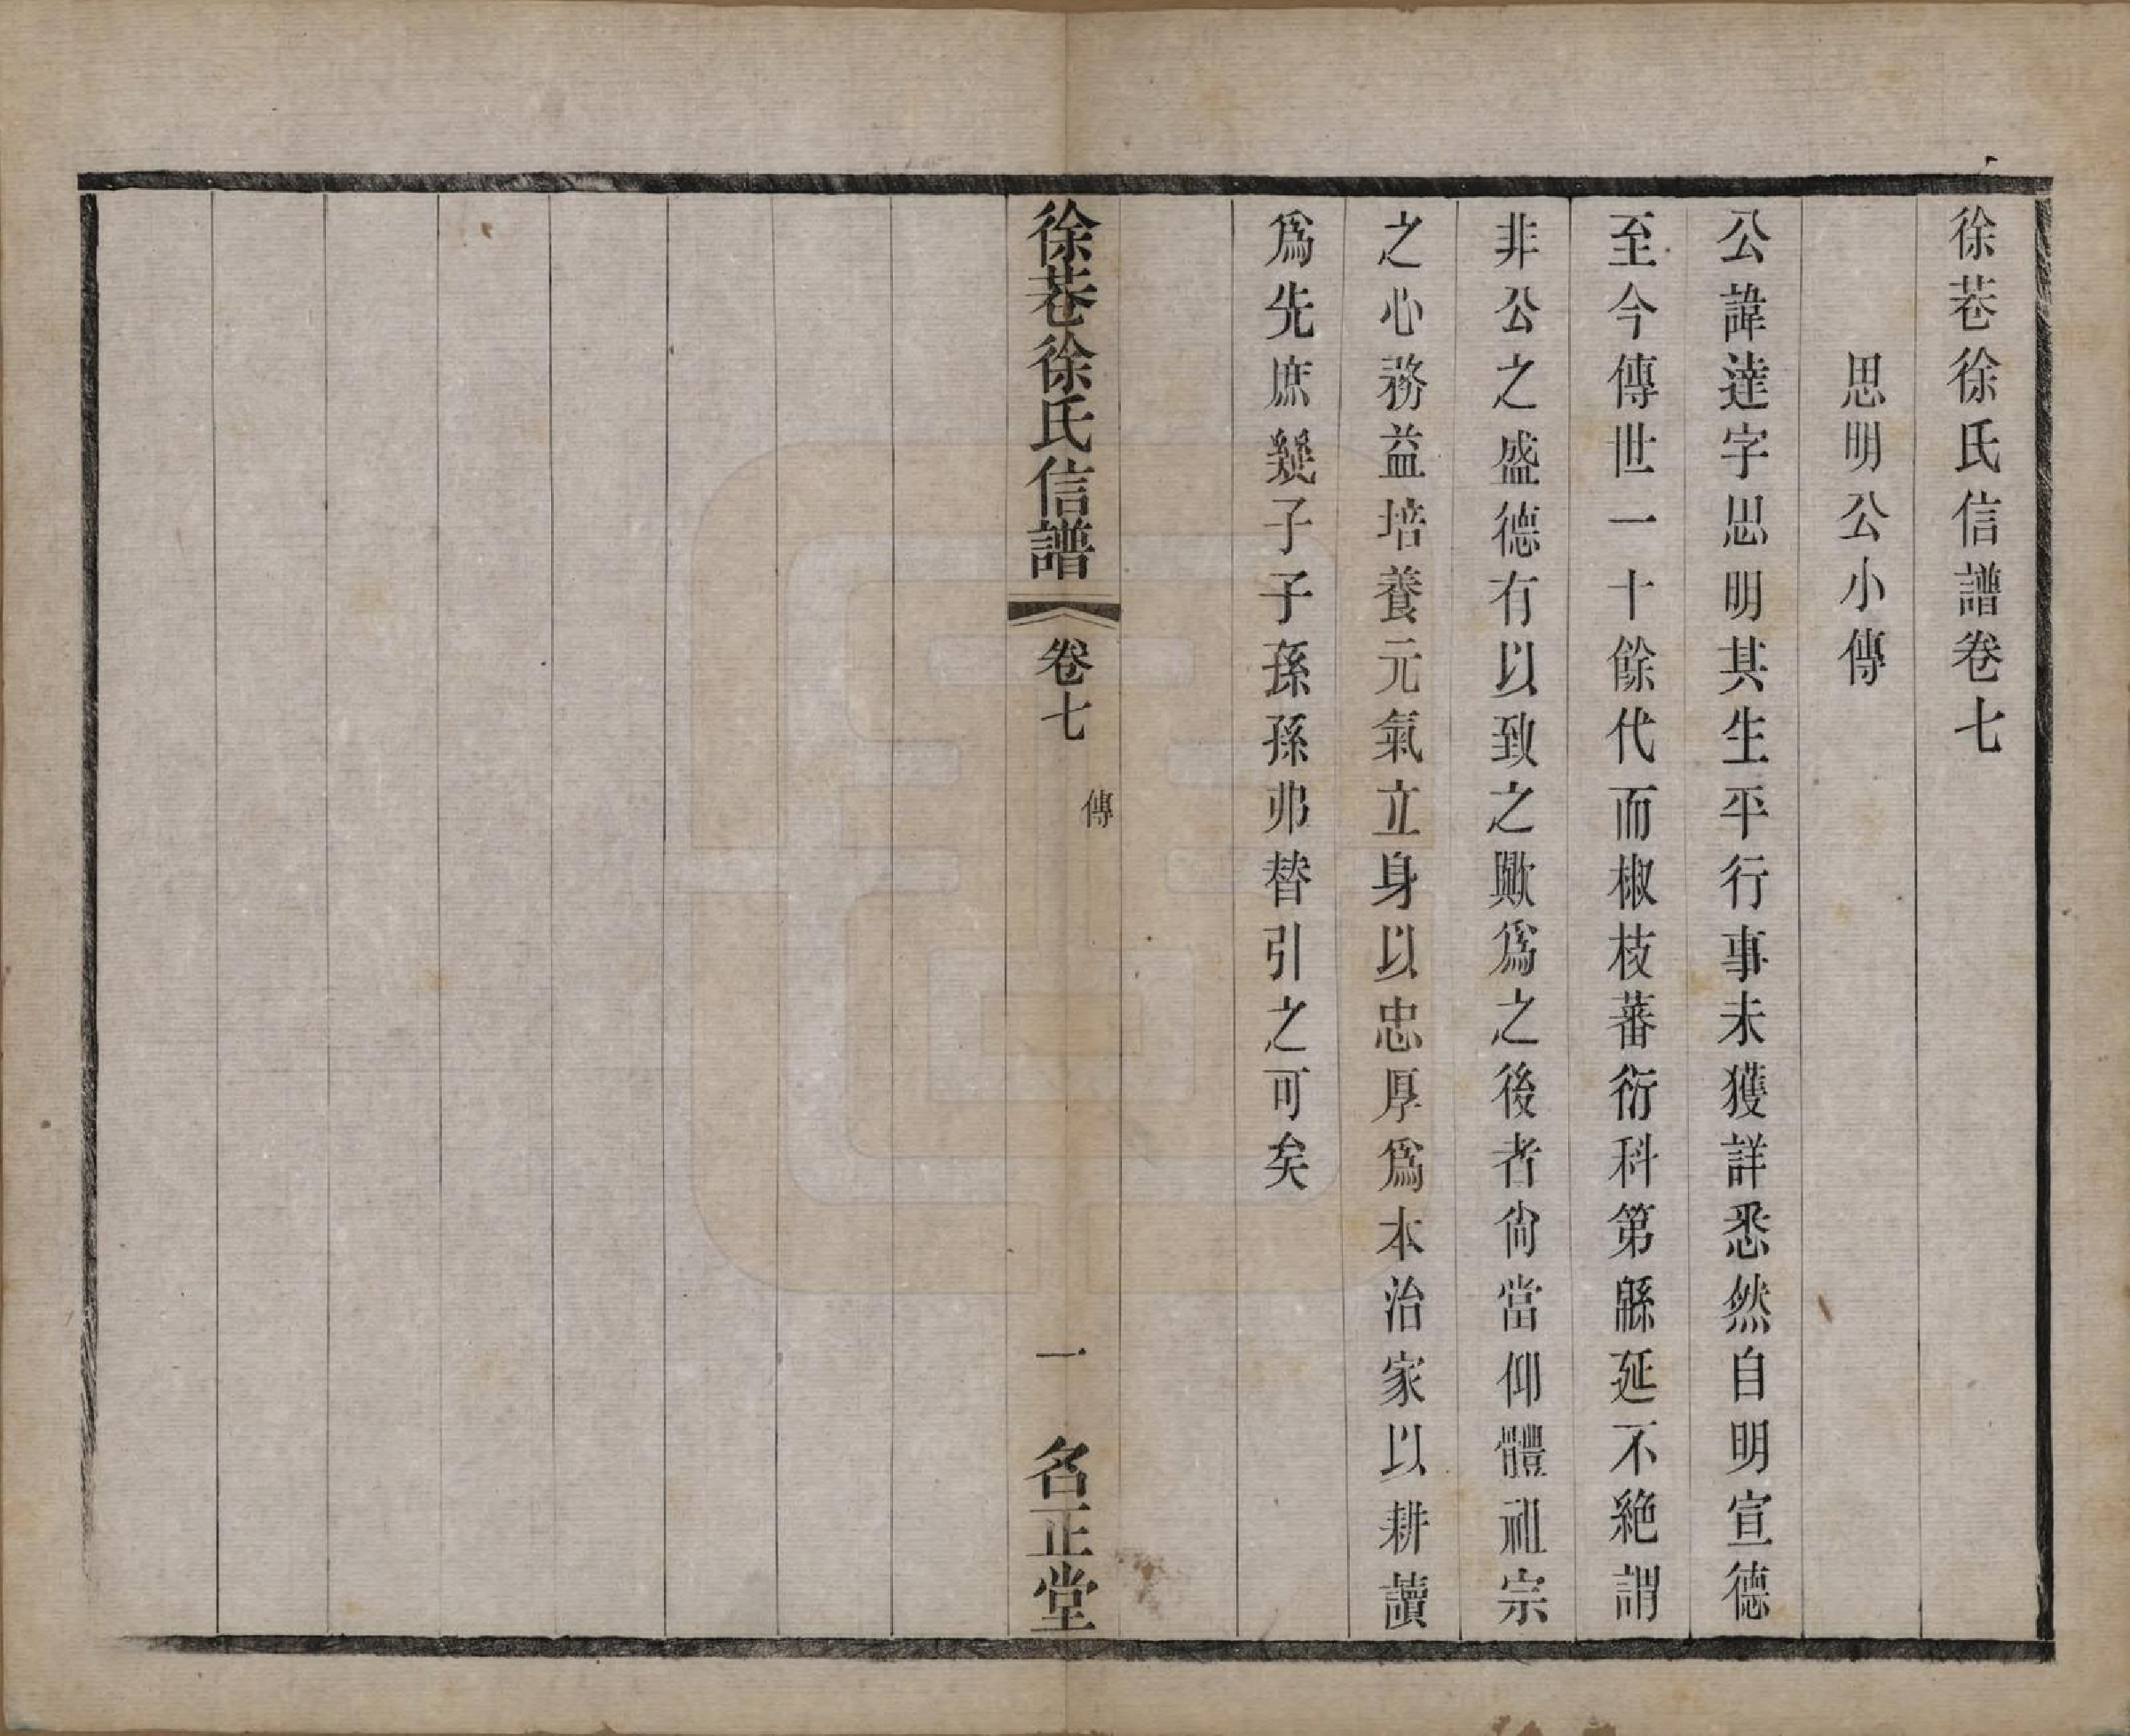 徐巷徐氏信譜卷七
思明公小傳
公諱達字思明其生平行事未獲詳悉然自明宣德
至今傳世一十餘代而椒枝蕃衍科第緜延不絶謂
非公之盛德有以致之歟爲之後者尙當仰體祖宗
之心務益培養元氣立身以忠厚爲本治家以耕讀
爲先庶幾子子孫孫弗替引之可矣
徐巷徐氏信譜 卷七 傳 一 名正堂